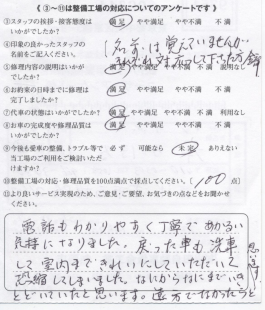 《 ③～⑪は整備工場の対応についてのアンケートです 》
③スタッフの挨拶・接客態度は 満足 やや満足 やや不満 不満
いかがでしたか?
④印象の良かったスタッフの
名前をご記入ください。
(名前は覚えていませんが
対応して下さった方
⑤修理内容の説明はいかが 満足 やや満足 やや不満 不満 説明なし
でしたか?
⑥お約束の日時までに修理は
完了しましたか?
⑦代車の状態はいかがでしたか? 満足 やや満足 やや不満 不満 利用なし
⑧お車の完成度や修理品質は 満足 やや満足 やや不満 不満
いかがでしたか?
⑨今後も愛車の整備、トラブル等で 必ず 可能なら 未定 ありえない
当工場のご利用をご検討いただ
けますか?
⑩整備工場の対応・修理品質を100点満点で採点してください。( 100 点)
⑪より良いサービス実現のため、ご意見・ご要望、お気づきの点などをお聞かせ
ください。
電話もわかりやすく丁寧であかるい
気持になりました。戻った車も洗車
して室内まできれいにしていただいて
恐縮してしまいました。なにからなにまでいき
とどいていたと思います。遠方でなかったらと
思います